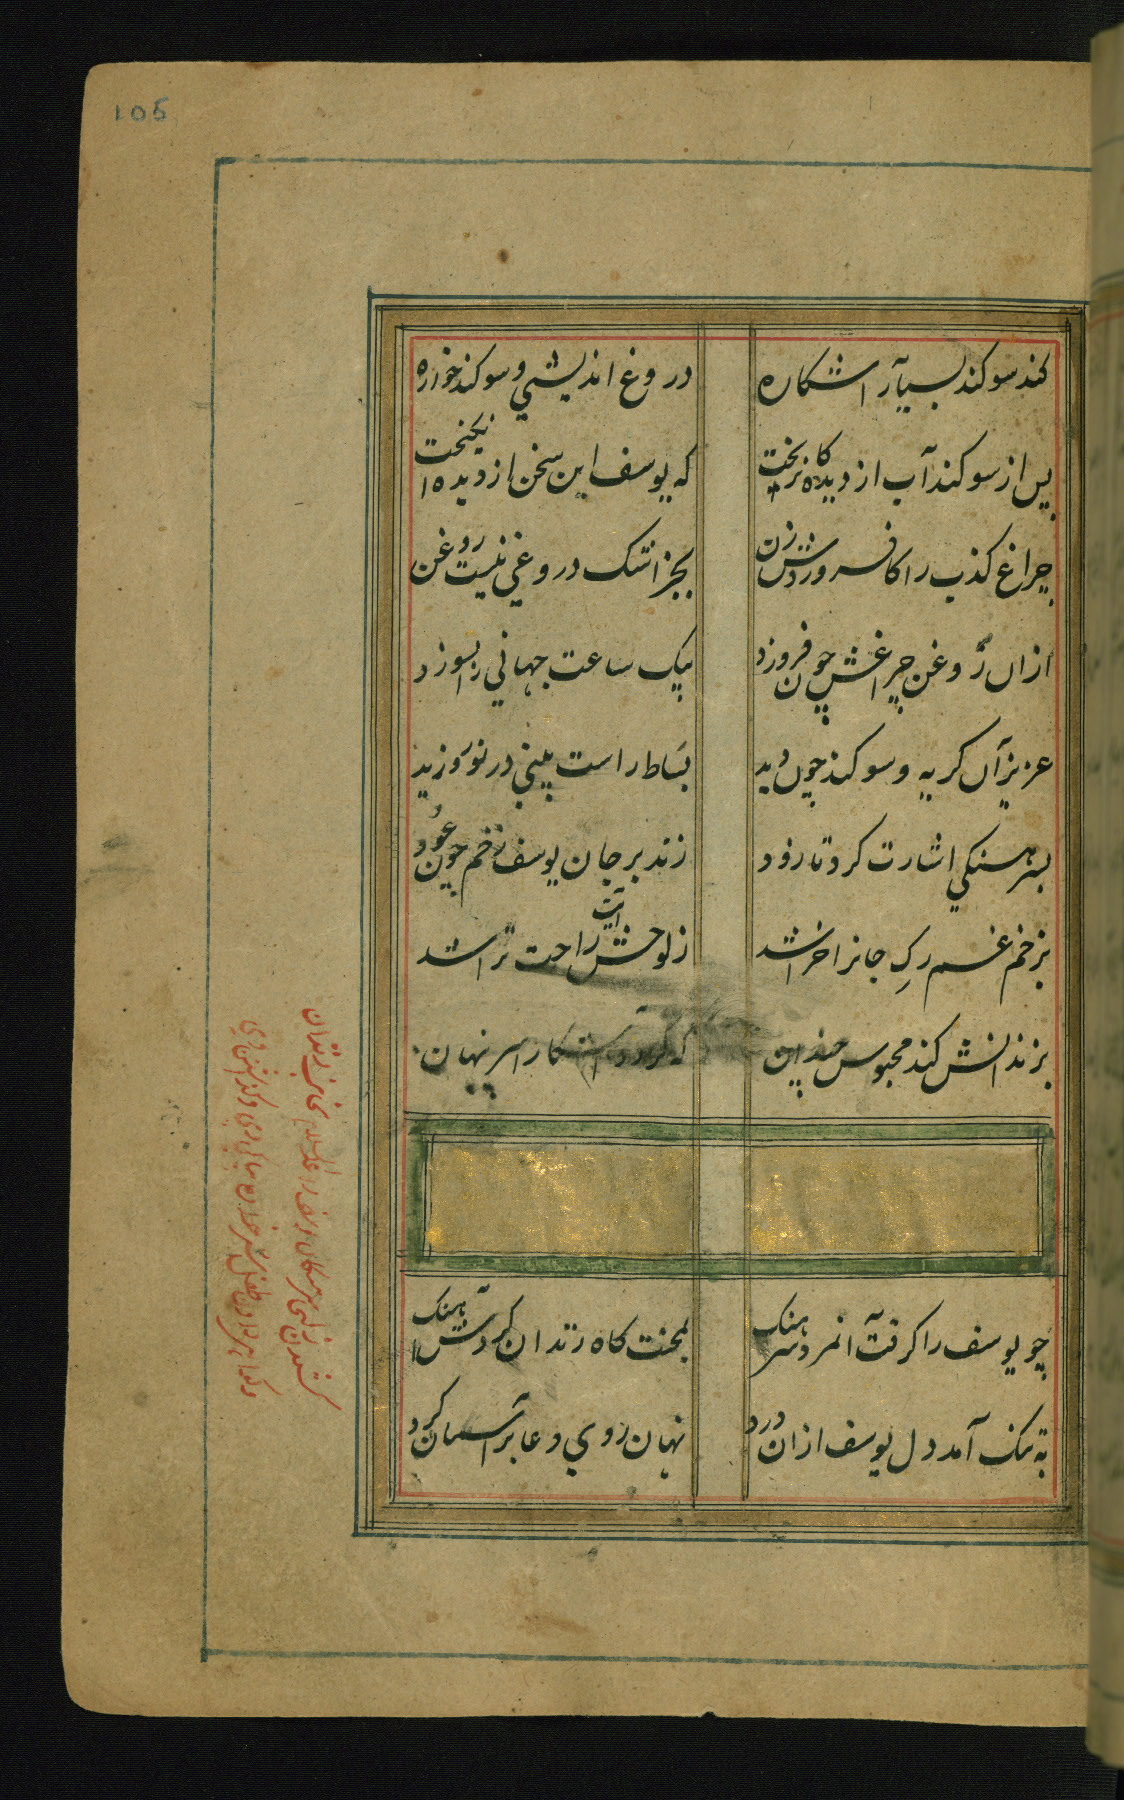 105
کند سوکند بسیار آشکاره
دروغ اندیشي و سوکند خواره
پس از سوکند آب از دیدها ریخت
که یوسف این سخن از دیده انیکنحت
چراغ کذب را کافروزدش زن
بجز اشک دروغي نیست روغن
ازان روغن چراغش چون فروزد
بیک ساعت جهاني را بسوزد
عزیز آن کریه و سوکند چون دید
بساط راست بیني در نوردید
بسرهنکي اشارت کرد تا زود
زند بر جان یوسف زخم چون عود
بزخم غم رکِ جانرا خراشد
ز لوحش آیت راحت تراشد
بزندانش کند محبوس چندان
که کردد آشکارا سر پنهان
چو یوسف را کرفت آنمرد سرهنک
بمحنت کاه زندان کردش آهنک
بتنک آمد دل یوسف ازان درد
نهان روي دعا بر آسمان کرد